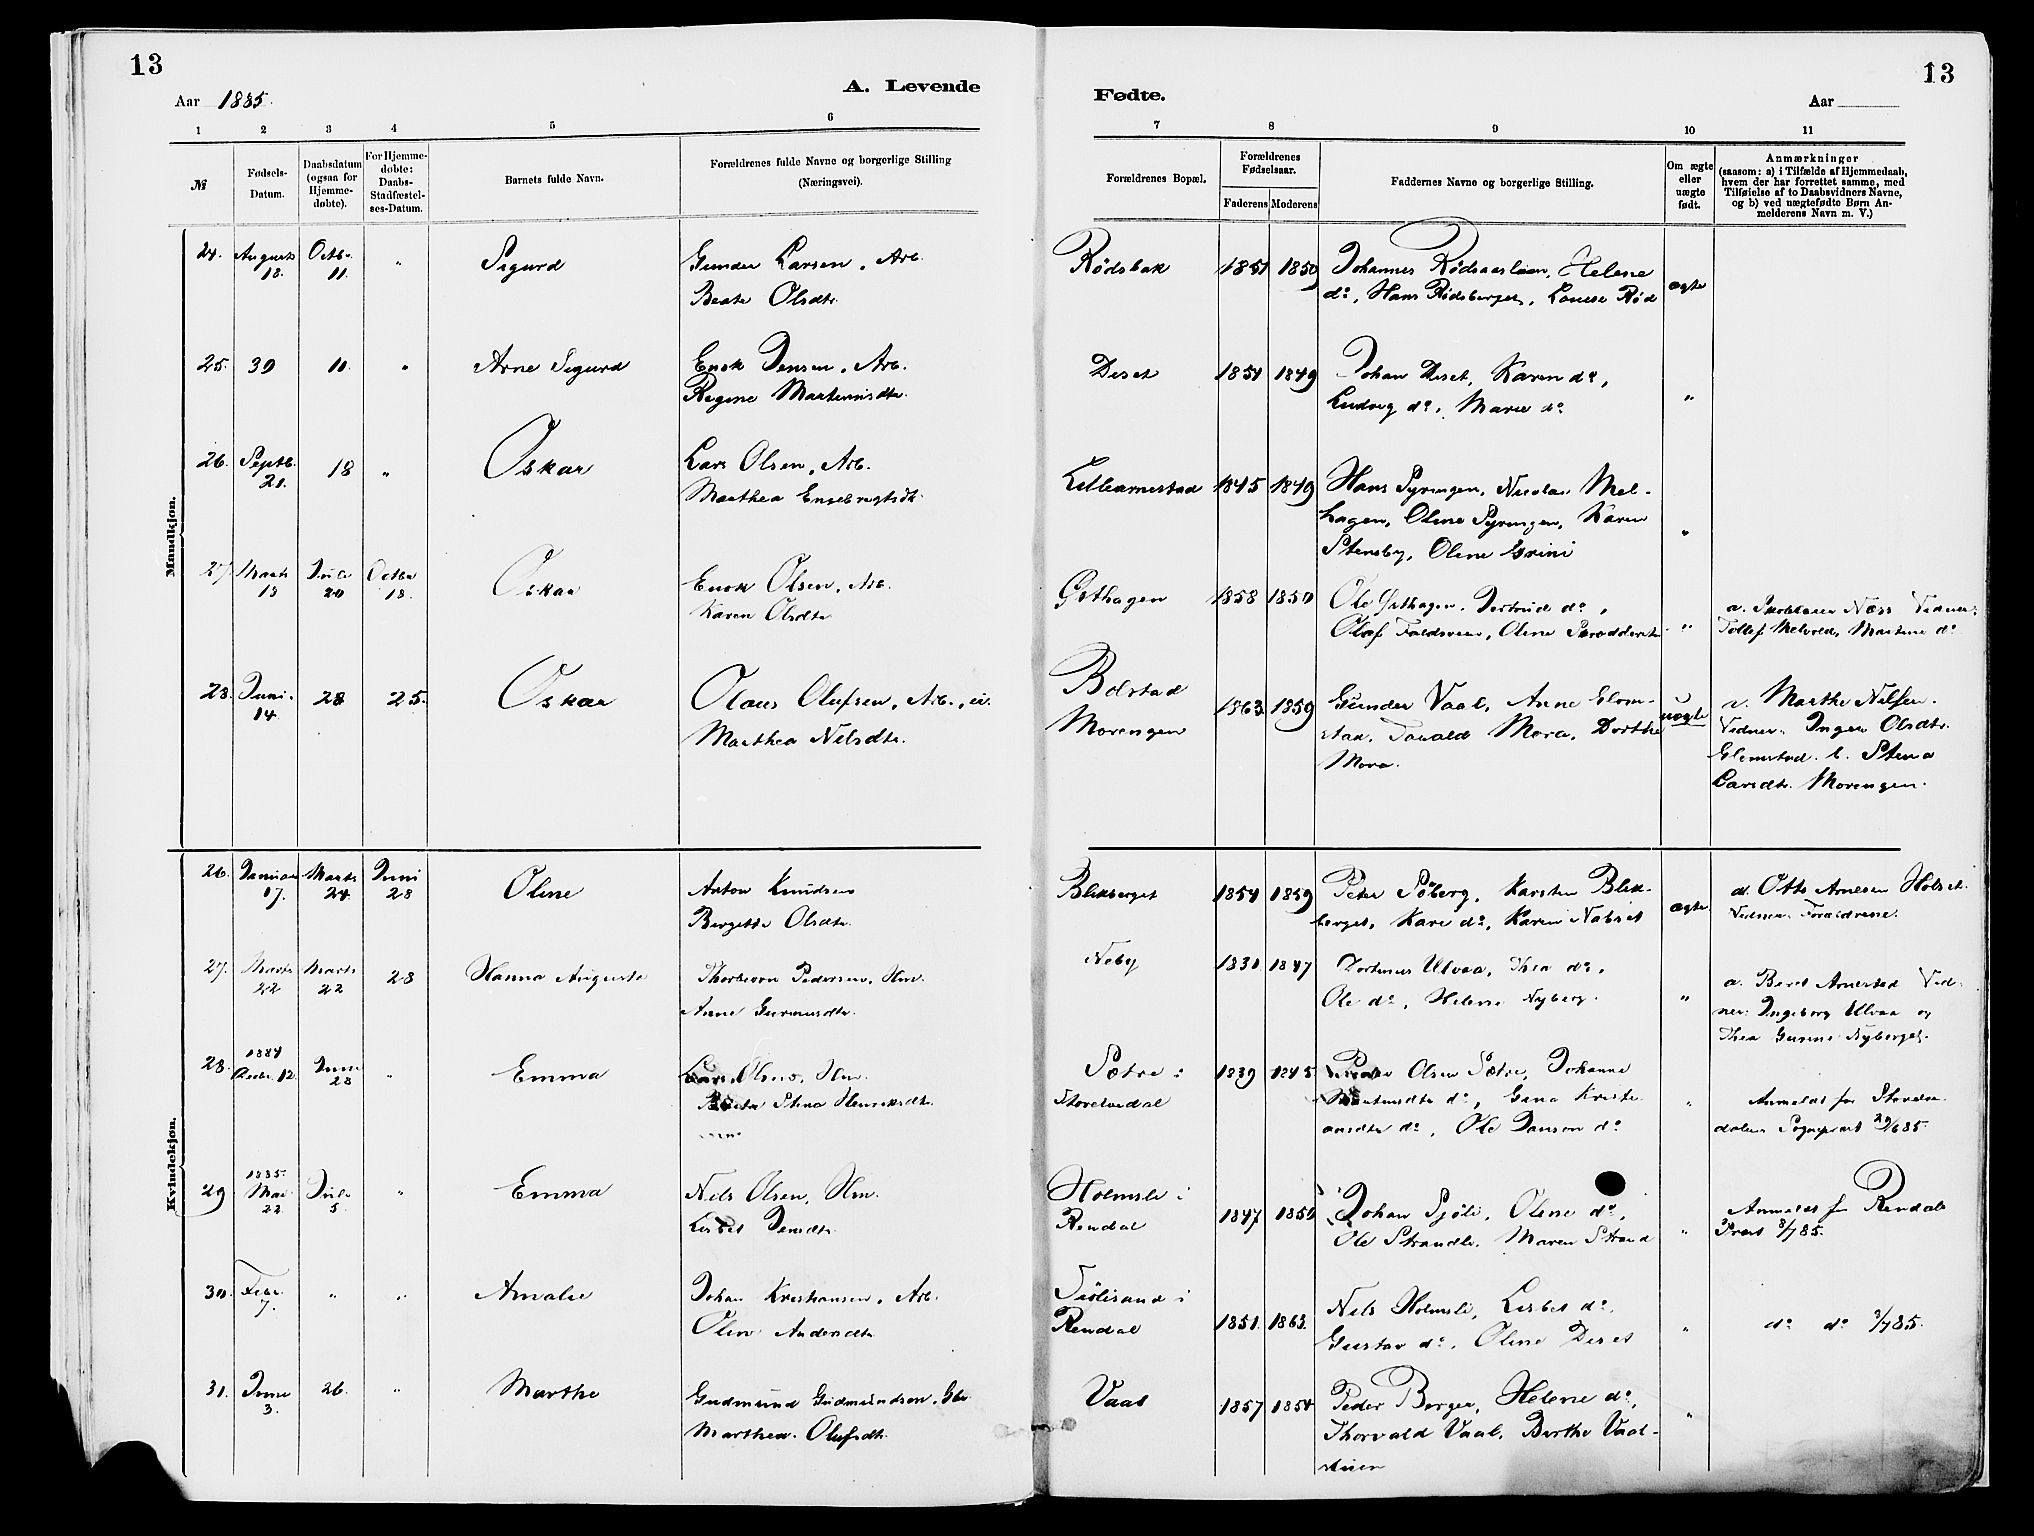 13
Aar 1885.
A. Levende
1 2 3 4 5 6
№
Fødsels-Datum.
Daabsdatum (ogsaa for Hjemme-døbte).
For Hjemme-døbte: Daabs-Stadfæstel-ses-Datum.
Barnets fulde Navn.
Forældrenes fulde Navne og borgerlige Stilling
(Næringsvei).
Mandkjøn.
24. August 18. Octb. 11. " Sigurd Gunder Larsen, Arb.
Beate Olsdtr.
25. 30 11. " Arne Sigurd Enok Jensen, Arb.
Regine Martinisdtr.
26. Septb. 21. 18 " Oskar Lars Olsen, Arb.
Marthea Engebrigtsdt.
27. Marts 13 Juli 20 Octbr 18. Oskar Enok Olsen, Arb.
Karen Olsdtr
28. Juni 14. 28 25. Oskar Olaus Olufsen, Arb., ei.
Marthea Nilsdtr.
Kvindekjøn.
26. Januar 17. Marts 24. Juni 28 Oline Anton Knudsen
Bergitte Olsdtr.
27. Marts 22 Marts 22 28 Hanna Auguste Pedersen, Hm.
Anne
28. 1884 Decbr. 12. Juni 28 " Emma Lars Olsen, Hm.
Stina Henriksdtr.
29 1885. Mai 22. Juli 5. " Emma Nils Olsen, Hm.
Lisbet Jensdtr.
30. Febr. 7. " " Amalie Johan Kristiansen, Arb.
Oline Andersdtr
31. Juni 3. 26. " Marthe Gudmund Gudmundsen, Gbr
Marthea Olufsdtr.
13
Fødte.
Aar
7 8 9 10 11
Forældrenes Bopæl.
Forældrenes Fødselsaar.
Faderens Moderens
Faddernes Navne og borgerlige Stilling.
Om ægte eller uægte født.
Anmærkninger
(saasom: a) i Tilfælde af Hjemmedaab,
hvem der har forrettet samme, med
Tilføielse af to Daabsvidners Navne,
og b) ved uægtefødte Børn An-
melderens Navn m. V.)
Rødsbak 1851 1850 Johannes Rødsaasløen, Helene
do, Hans Rødsberget, Louise Rød ægte
Deset 1851 1849 Johan Deset, Karen do,
Ludvig do, Marie do "
Lillearnestad 1845 1849 Hans Gyringen, Nicolai Mel-
hagen, Oline Gyringen, Karen
Stensby, Oline Grini "
Gsthagen 1858 1850 Ole Gsthagen, Gertrud do,
Olaf Oline "
a. Næss Vidner:
Tollef Melvold, Martine do
Bolstad
Morengen 1863 1859 Gunder Vaal, Anne Glom-
stad, Mora, Dorthe
Mora. uægte
a. Marthe Nilsen.
Vidner: Inger Olsdtr.
Glomstad. b. Stina
Larsdtr. Morengen.
Blekberget 1854 1859 Peter Søberg, Karsten Blek-
berget, Kari do, Karen Nabset ægte
a. Otto Arnesen Holset.
Vidner: Forældrene.
Neby 1830 1847 Ulvaa, Thea do,
Ole do, Helene Nyberg. "
a. Beret Arnestad Vid-
ner: Ingeborg Ulvaa og
Thea Nyberget.
Sætre i
Storelvedal 1839 1845 Peder Olsen Sætre, Johanne
do, Gina Kristi-
ansdtr do, Ole Jansen do "
Anmeldt for Storelve-
dalens Sogneprest 29/6 85.
Holmsli i
Rendal 1847 1850 Johan Sjøli, Oline do,
Ole Strandli, Maren Strand "
Anmeldt for Rendals
Prest 8/7 85.
Sjølisand i
Rendal 1851. 1863. Nils Holmsli, Lisbet do,
Gustav do, Oline Deset "
do do 8/7 85.
Vaal 1857 1854 Peder Berger, Helene do,
Thorvald Vaal, Berthe Vaal-
stuen "